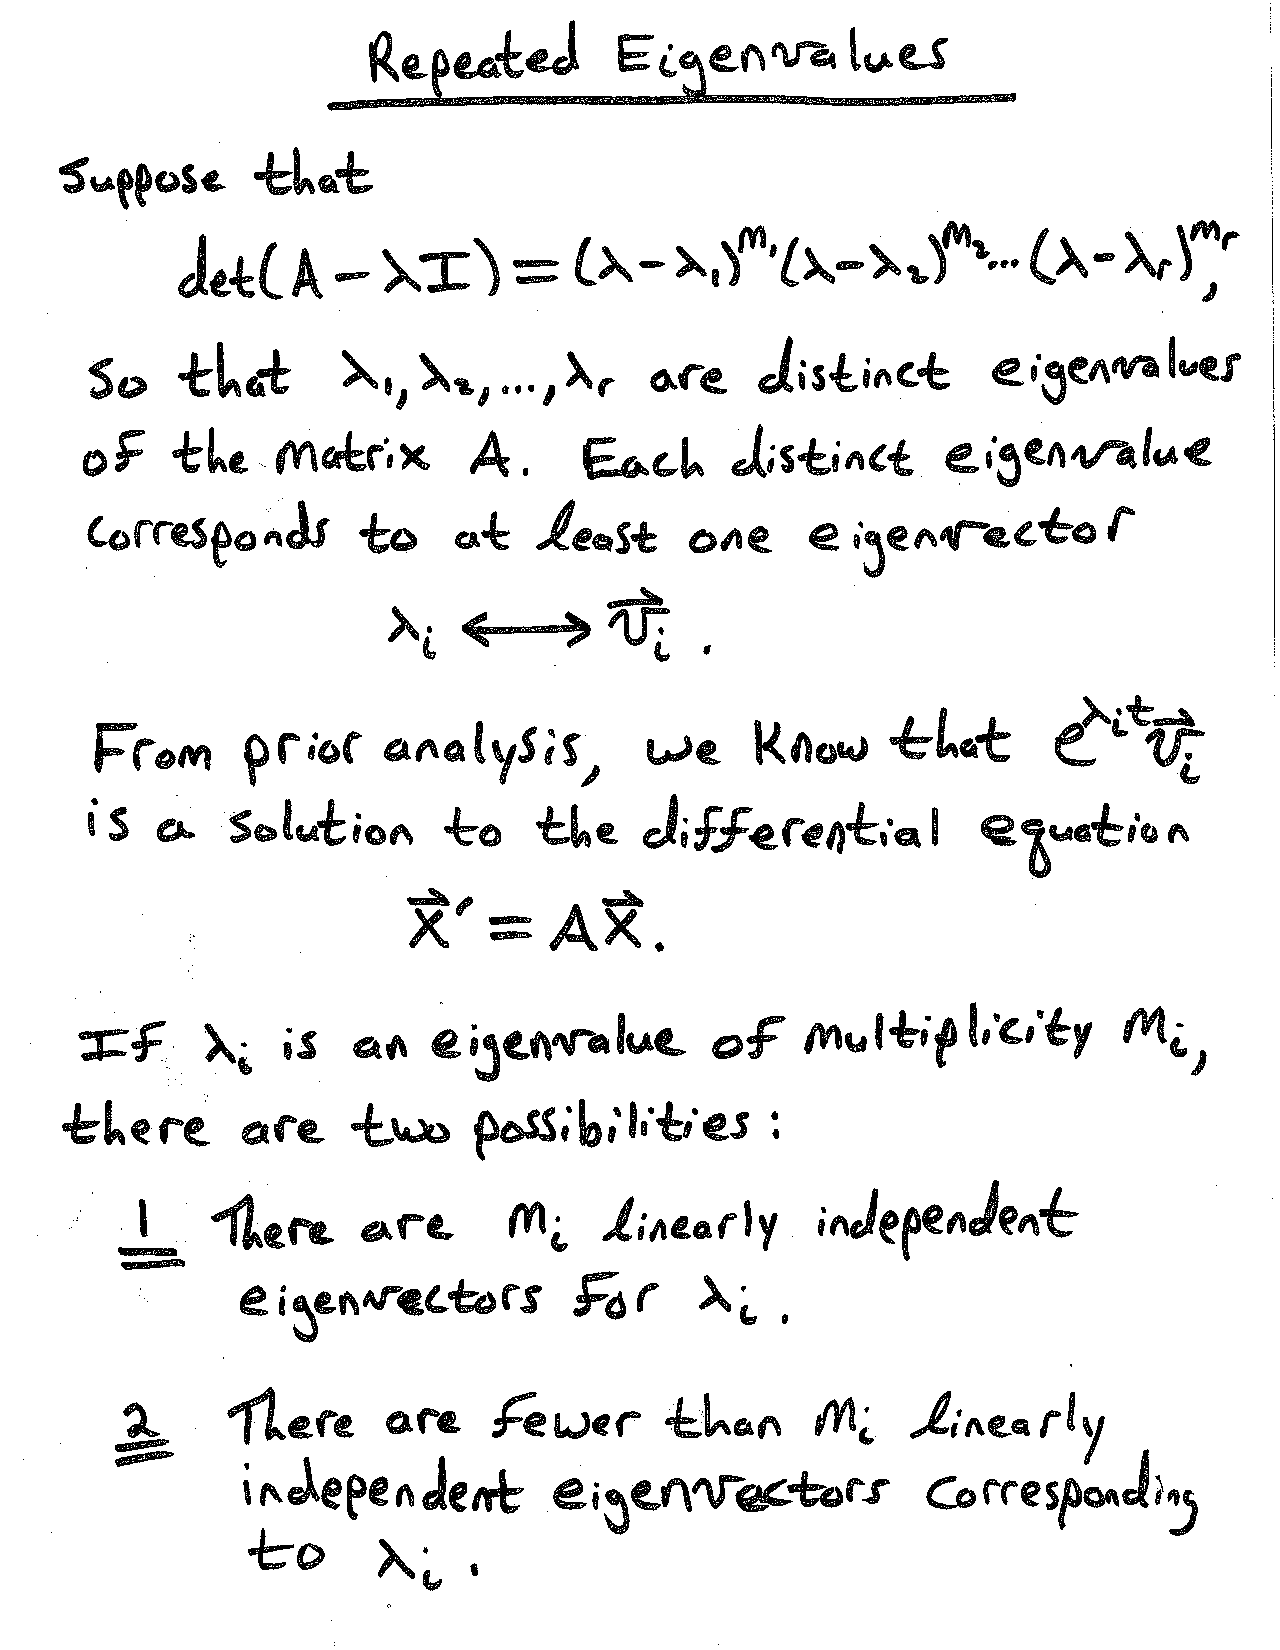 Repeated Eigenvalues
Suppose that
det(A − λI) = (λ−λ₁)^m₁ (λ−λ₂)^m₂ ... (λ−λᵣ)^mᵣ,
so that λ₁, λ₂, ..., λᵣ are distinct eigenvalues
of the matrix A. Each distinct eigenvalue
corresponds to at least one eigenvector
λᵢ ⟷ v⃗ᵢ.
From prior analysis, we know that e^(λᵢt) v⃗ᵢ
is a solution to the differential equation
x⃗′ = Ax⃗.
If λᵢ is an eigenvalue of multiplicity mᵢ,
there are two possibilities:
1 There are mᵢ linearly independent
eigenvectors for λᵢ.
2 There are fewer than mᵢ linearly
independent eigenvectors corresponding
to λᵢ.